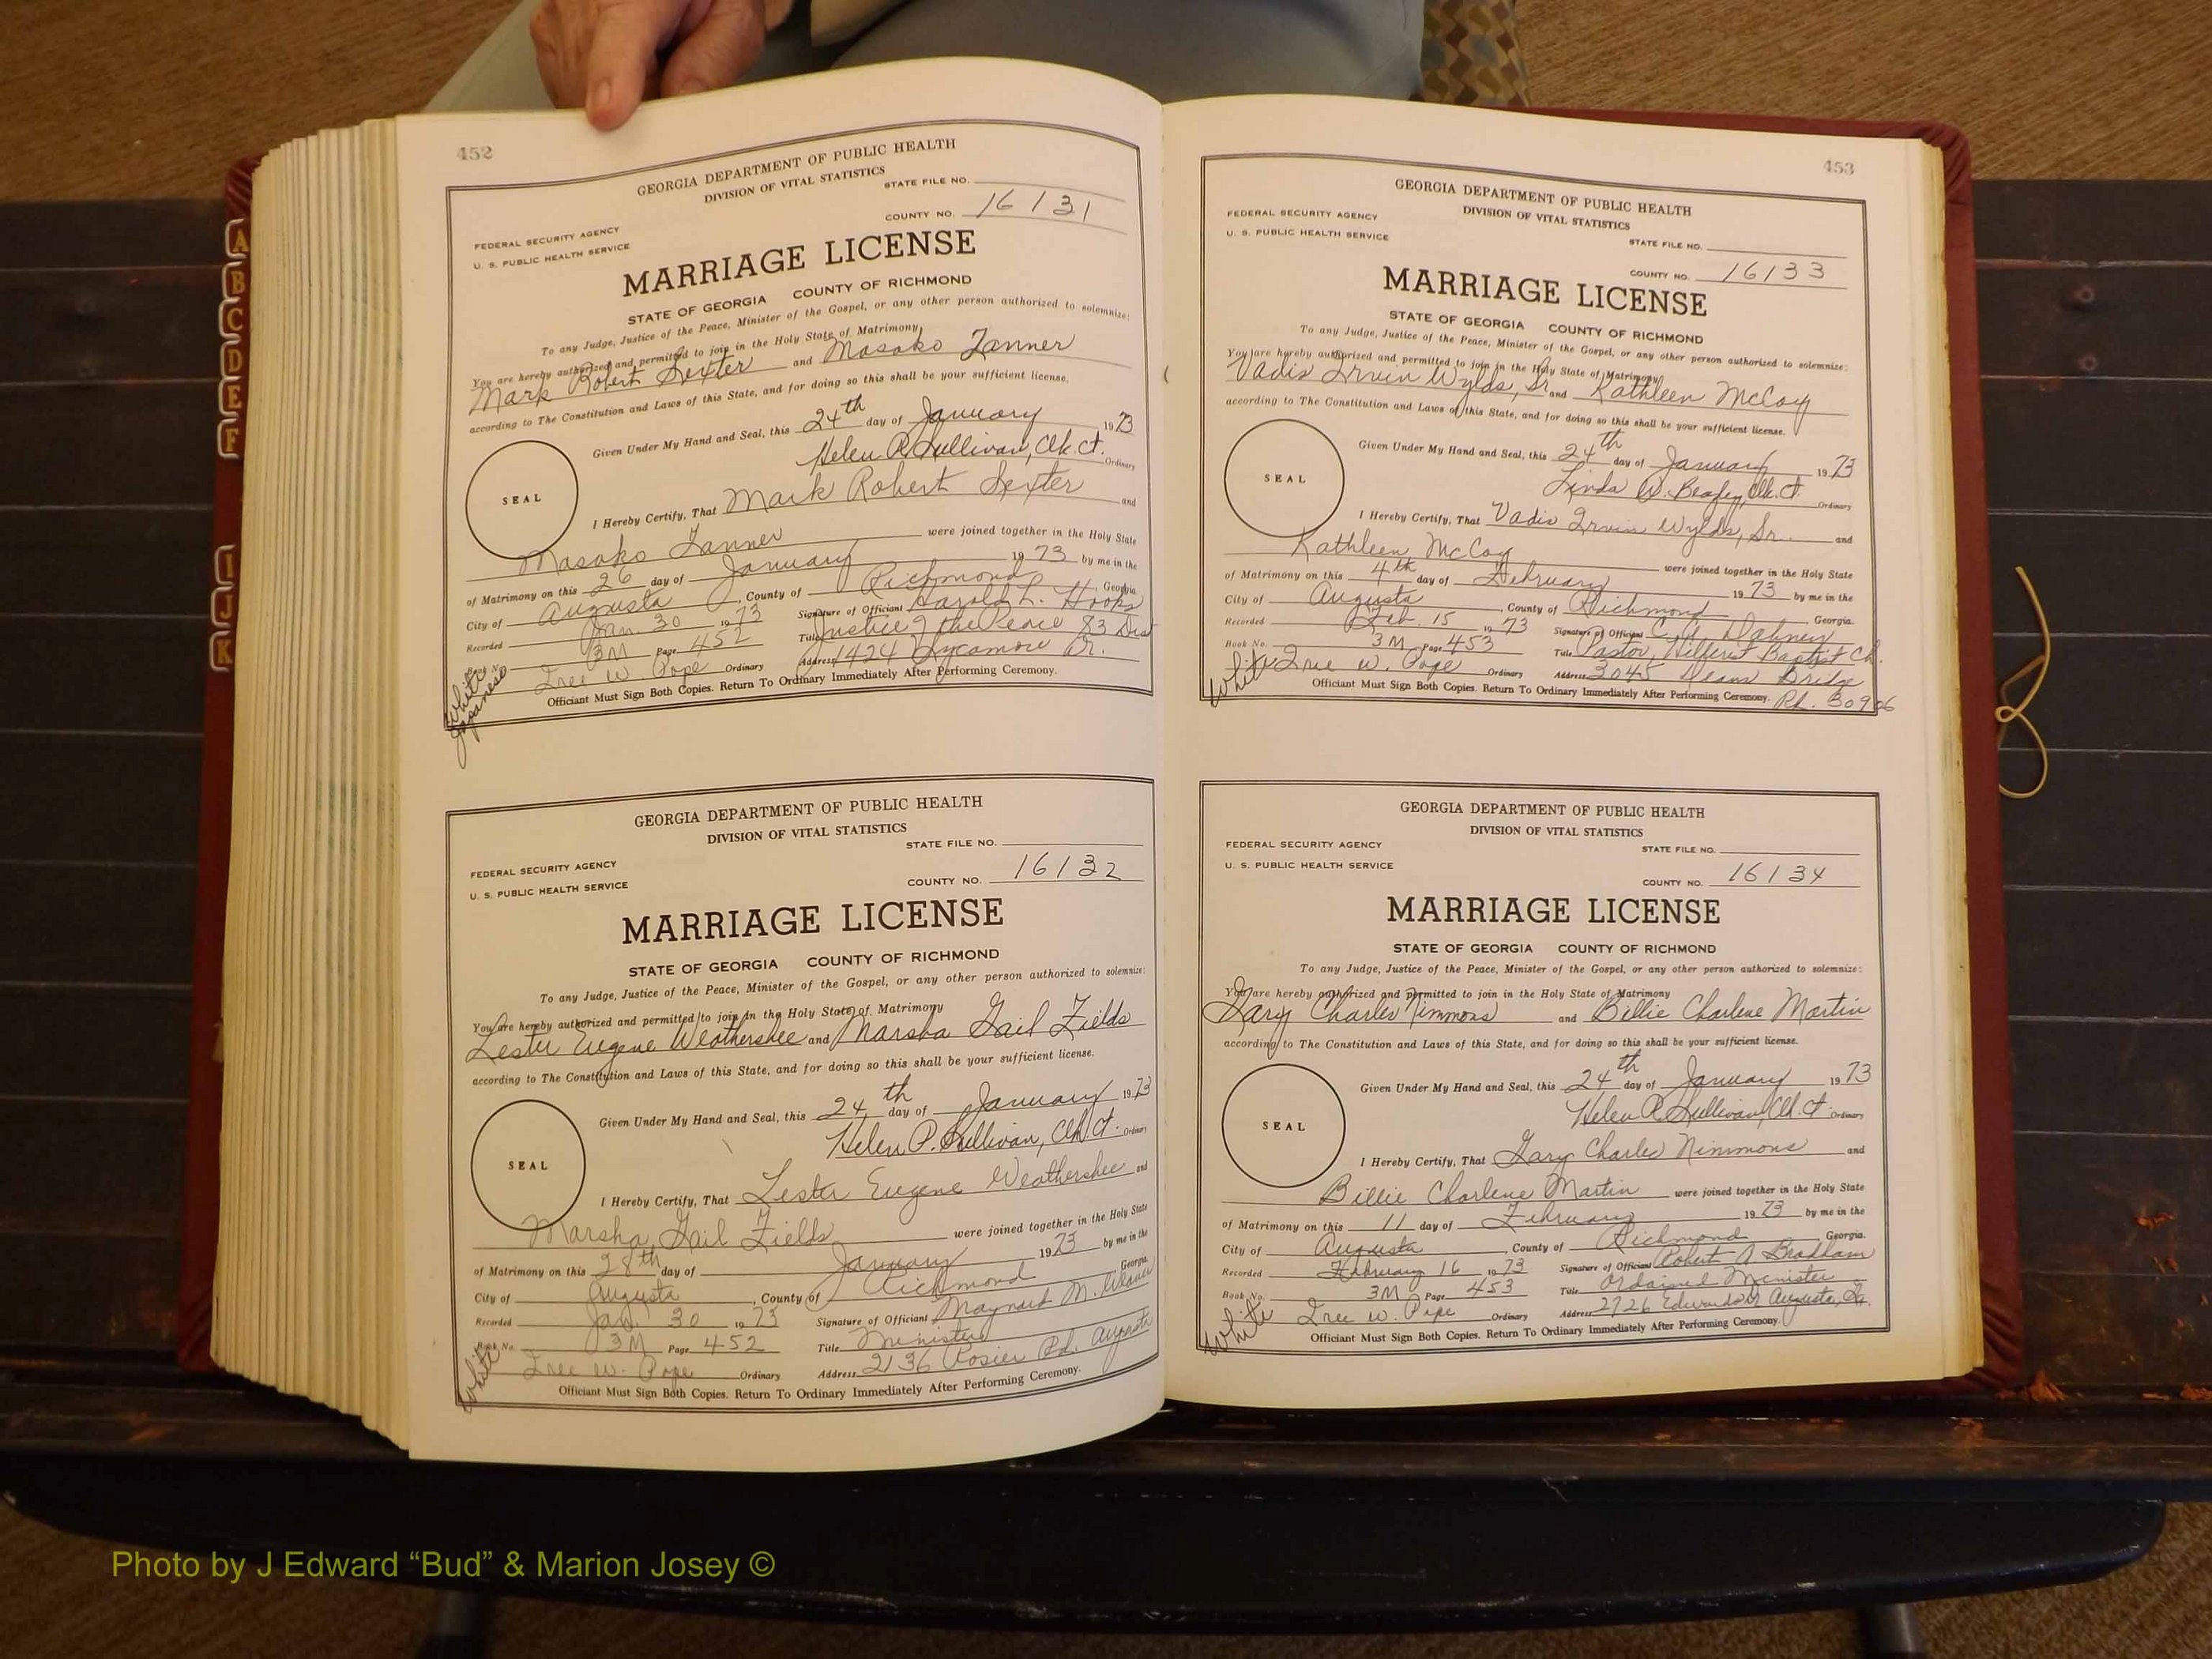 452
GEORGIA DEPARTMENT OF PUBLIC HEALTH
DIVISION OF VITAL STATISTICS
STATE FILE NO.
COUNTY NO. 16131
FEDERAL SECURITY AGENCY
U. S. PUBLIC HEALTH SERVICE
MARRIAGE LICENSE
STATE OF GEORGIA COUNTY OF RICHMOND
To any Judge, Justice of the Peace, Minister of the Gospel, or any other person authorized to solemnize:
You are hereby authorized and permitted to join in the Holy State of Matrimony
Mark Robert Sexter and Masako Tanner
according to The Constitution and Laws of this State, and for doing so this shall be your sufficient license.
Given Under My Hand and Seal, this 24th day of January 1973
Helen P. Sullivan, Clk. Ct. Ordinary
SEAL
I Hereby Certify, That Mark Robert Sexter and
Masako Tanner were joined together in the Holy State
of Matrimony on this 26 day of January 1973 by me in the
City of Augusta, County of Richmond, Georgia
Recorded Jan. 30 1973 Signature of Officiant Harold L. Hooks
Book No. 3M Page 452 Title Justice of the Peace 83 Dist
Iree W. Pope Ordinary Address 1424 Sycamore Dr.
Officiant Must Sign Both Copies. Return To Ordinary Immediately After Performing Ceremony.
White
Japanese
GEORGIA DEPARTMENT OF PUBLIC HEALTH
DIVISION OF VITAL STATISTICS
STATE FILE NO.
COUNTY NO. 16132
FEDERAL SECURITY AGENCY
U. S. PUBLIC HEALTH SERVICE
MARRIAGE LICENSE
STATE OF GEORGIA COUNTY OF RICHMOND
To any Judge, Justice of the Peace, Minister of the Gospel, or any other person authorized to solemnize:
You are hereby authorized and permitted to join in the Holy State of Matrimony
Lester Eugene Weathersbee and Marsha Gail Fields
according to The Constitution and Laws of this State, and for doing so this shall be your sufficient license.
Given Under My Hand and Seal, this 24th day of January 1973
Helen P. Sullivan, Clk. Ct. Ordinary
SEAL
I Hereby Certify, That Lester Eugene Weathersbee and
Marsha Gail Fields were joined together in the Holy State
of Matrimony on this 28th day of January 1973 by me in the
City of Augusta, County of Richmond Georgia
Recorded Jan. 30 1973 Signature of Officiant Maynard M.
Book No. 3M Page 452 Title Minister
Iree W. Pope Ordinary Address 2136 Rosier Rd. Augusta
Officiant Must Sign Both Copies. Return To Ordinary Immediately After Performing Ceremony.
White
453
GEORGIA DEPARTMENT OF PUBLIC HEALTH
DIVISION OF VITAL STATISTICS
FEDERAL SECURITY AGENCY
U. S. PUBLIC HEALTH SERVICE
STATE FILE NO.
COUNTY NO. 16133
MARRIAGE LICENSE
STATE OF GEORGIA COUNTY OF RICHMOND
To any Judge, Justice of the Peace, Minister of the Gospel, or any other person authorized to solemnize:
You are hereby authorized and permitted to join in the Holy State of Matrimony
Vadis Irvin Wylds, Sr. and Kathleen McCoy
according to The Constitution and Laws of this State, and for doing so this shall be your sufficient license.
Given Under My Hand and Seal, this 24th day of January 1973
Linda W. Beazley, Clk. Ct. Ordinary
SEAL
I Hereby Certify, That Vadis Irvin Wylds, Sr. and
Kathleen McCoy were joined together in the Holy State
of Matrimony on this 4th day of February 1973 by me in the
City of Augusta, County of Richmond Georgia.
Recorded Feb. 15 1973 Signature of Officiant C. A. Dabney
Book No. 3M Page 453 Title Pastor, Hillcrest Baptist Ch.
Iree W. Pope Ordinary Address 3045 Deans Bridge
Officiant Must Sign Both Copies. Return To Ordinary Immediately After Performing Ceremony. Rd. 30906
White
GEORGIA DEPARTMENT OF PUBLIC HEALTH
DIVISION OF VITAL STATISTICS
FEDERAL SECURITY AGENCY
U. S. PUBLIC HEALTH SERVICE
STATE FILE NO.
COUNTY NO. 16134
MARRIAGE LICENSE
STATE OF GEORGIA COUNTY OF RICHMOND
To any Judge, Justice of the Peace, Minister of the Gospel, or any other person authorized to solemnize:
You are hereby authorized and permitted to join in the Holy State of Matrimony
Gary Charles Nimmons and Billie Charlene Martin
according to The Constitution and Laws of this State, and for doing so this shall be your sufficient license.
Given Under My Hand and Seal, this 24th day of January 1973
Helen P. Sullivan, Clk. Ct. Ordinary
SEAL
I Hereby Certify, That Gary Charles Nimmons and
Billie Charlene Martin were joined together in the Holy State
of Matrimony on this 11 day of February 1973 by me in the
City of Augusta, County of Richmond Georgia.
Recorded February 16 1973 Signature of Officiant Robert A. Bradham
Book No. 3M Page 453 Title Ordained Minister
Iree W. Pope Ordinary Address 2726 Edwards Dr Augusta, Ga.
Officiant Must Sign Both Copies. Return To Ordinary Immediately After Performing Ceremony.
White
A
B
C
D
E
F
I
J
K
Photo by J Edward “Bud” & Marion Josey ©